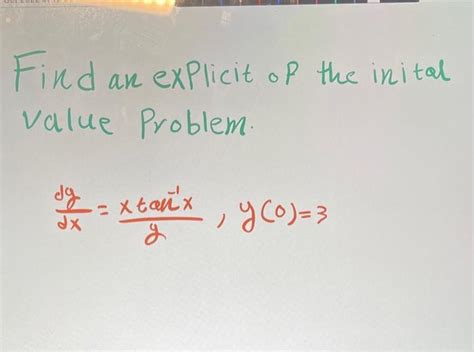 Find an explicit of the inital
value Problem.
dy/dx = x tan⁻¹x / y , y(0)=3